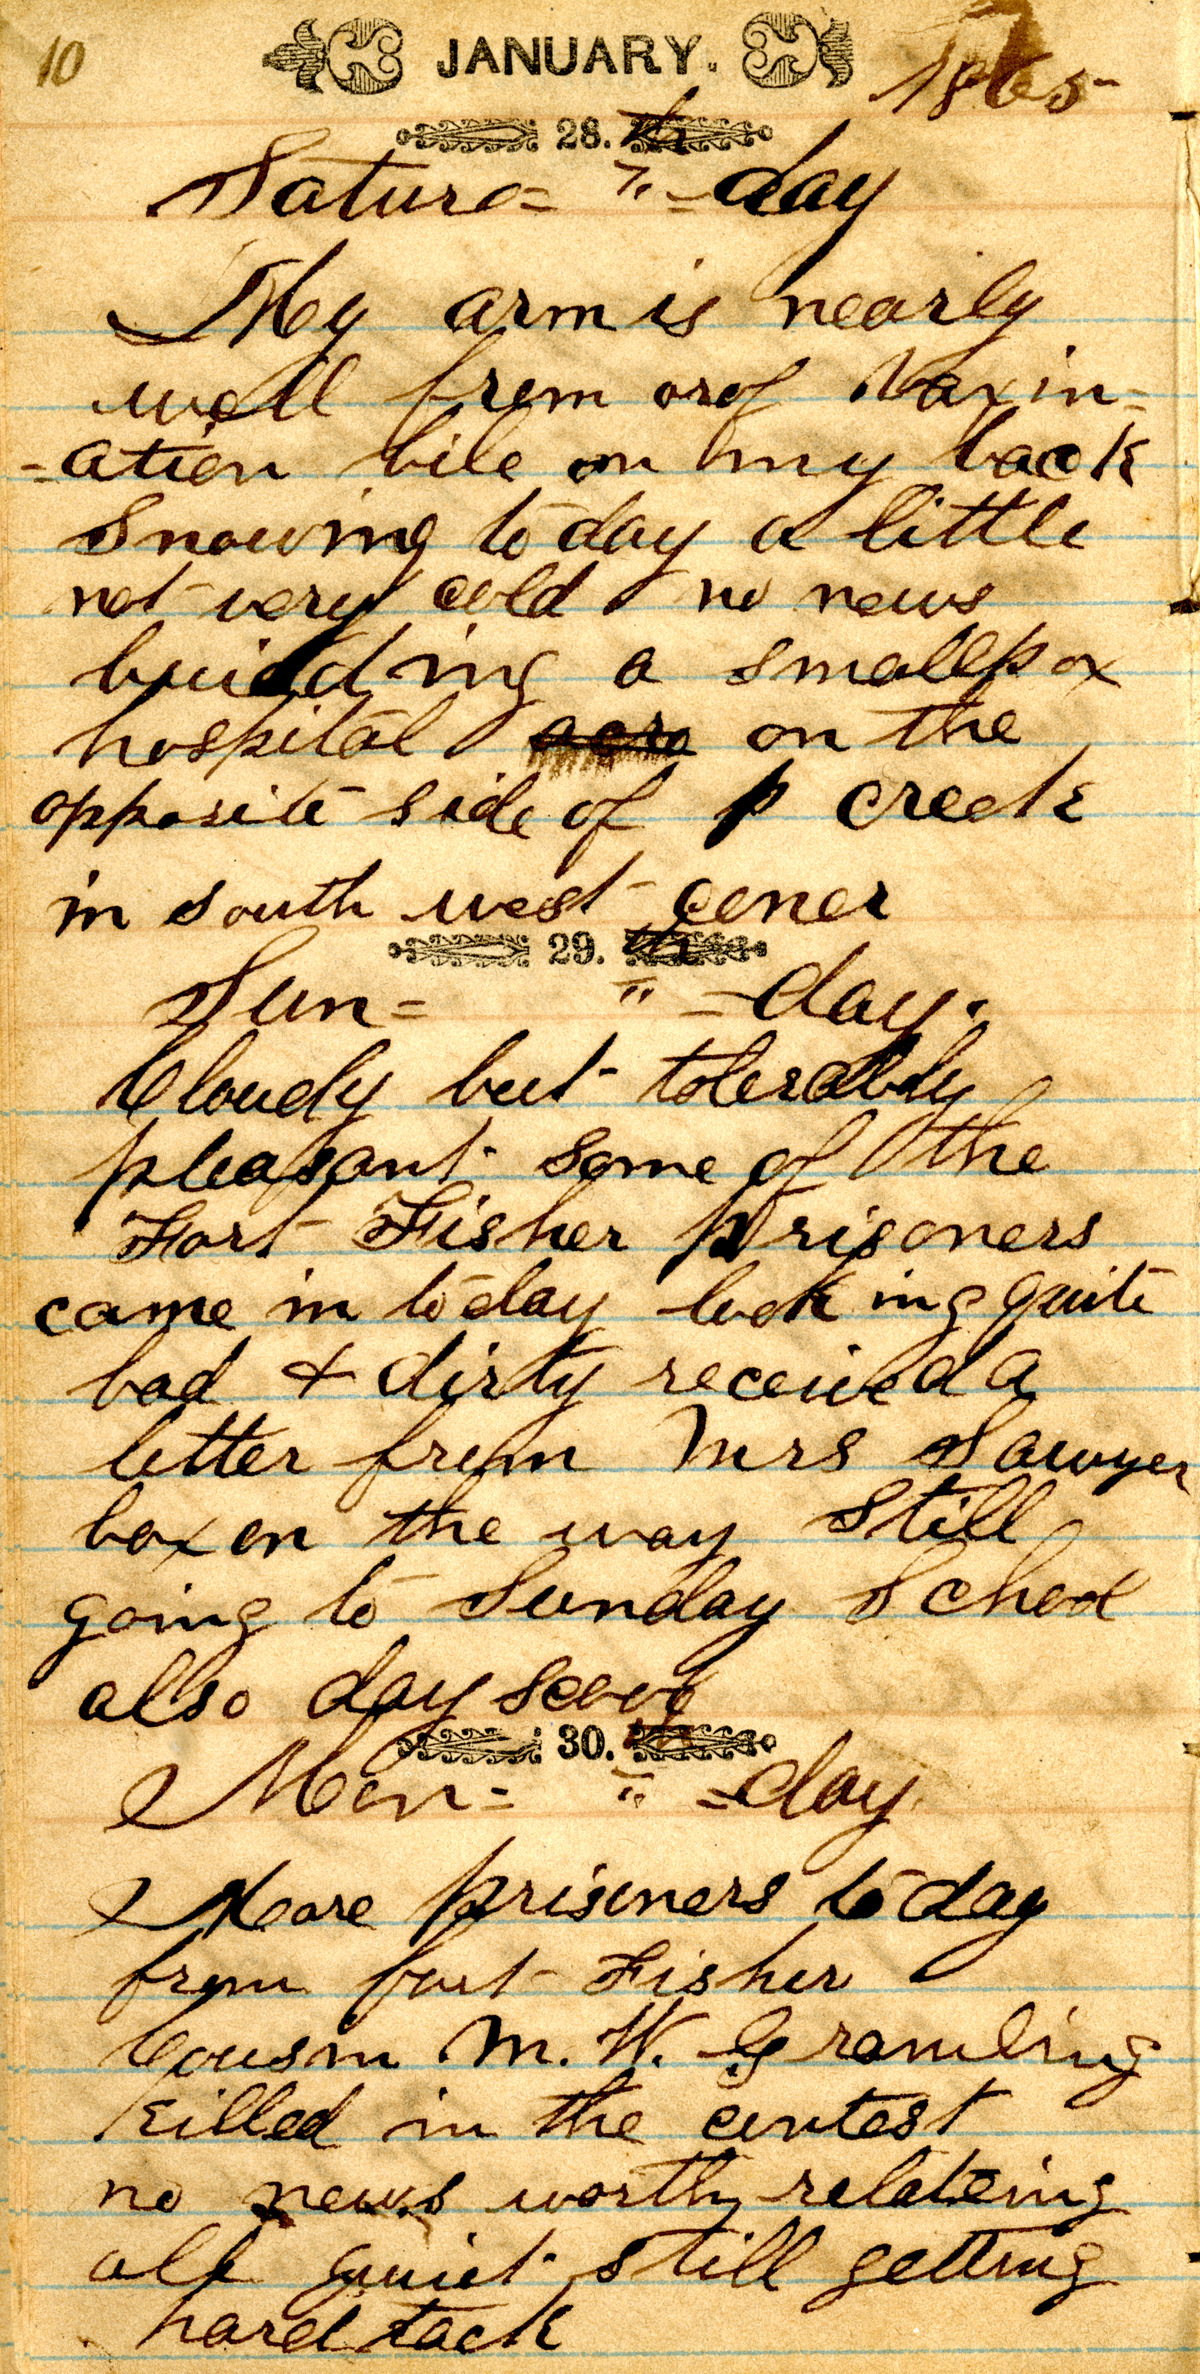 10 JANUARY. 1865
28.th
Satur= " =day
My arm is nearly
well from of Vaxin-
-ation bile on my back
Snowing today a little
not very cold no news
building a smallpox
hospital on the
opposite side of p creek
in south west coner
29.th
Sun= " =day.
Cloudy but tolerably
pleasant some of the
Fort Fisher prisoners
came in today looking quite
bad & dirty received a
letter from Mrs Sawyer
box on the way Still
going to Sunday School
also day scool
30.th
Mon= " =day
More prisoners today
from fort Fisher
Cousin M. W. Gramling
killed in the contest
no news worth relateing
all quiet still getting
hard tack